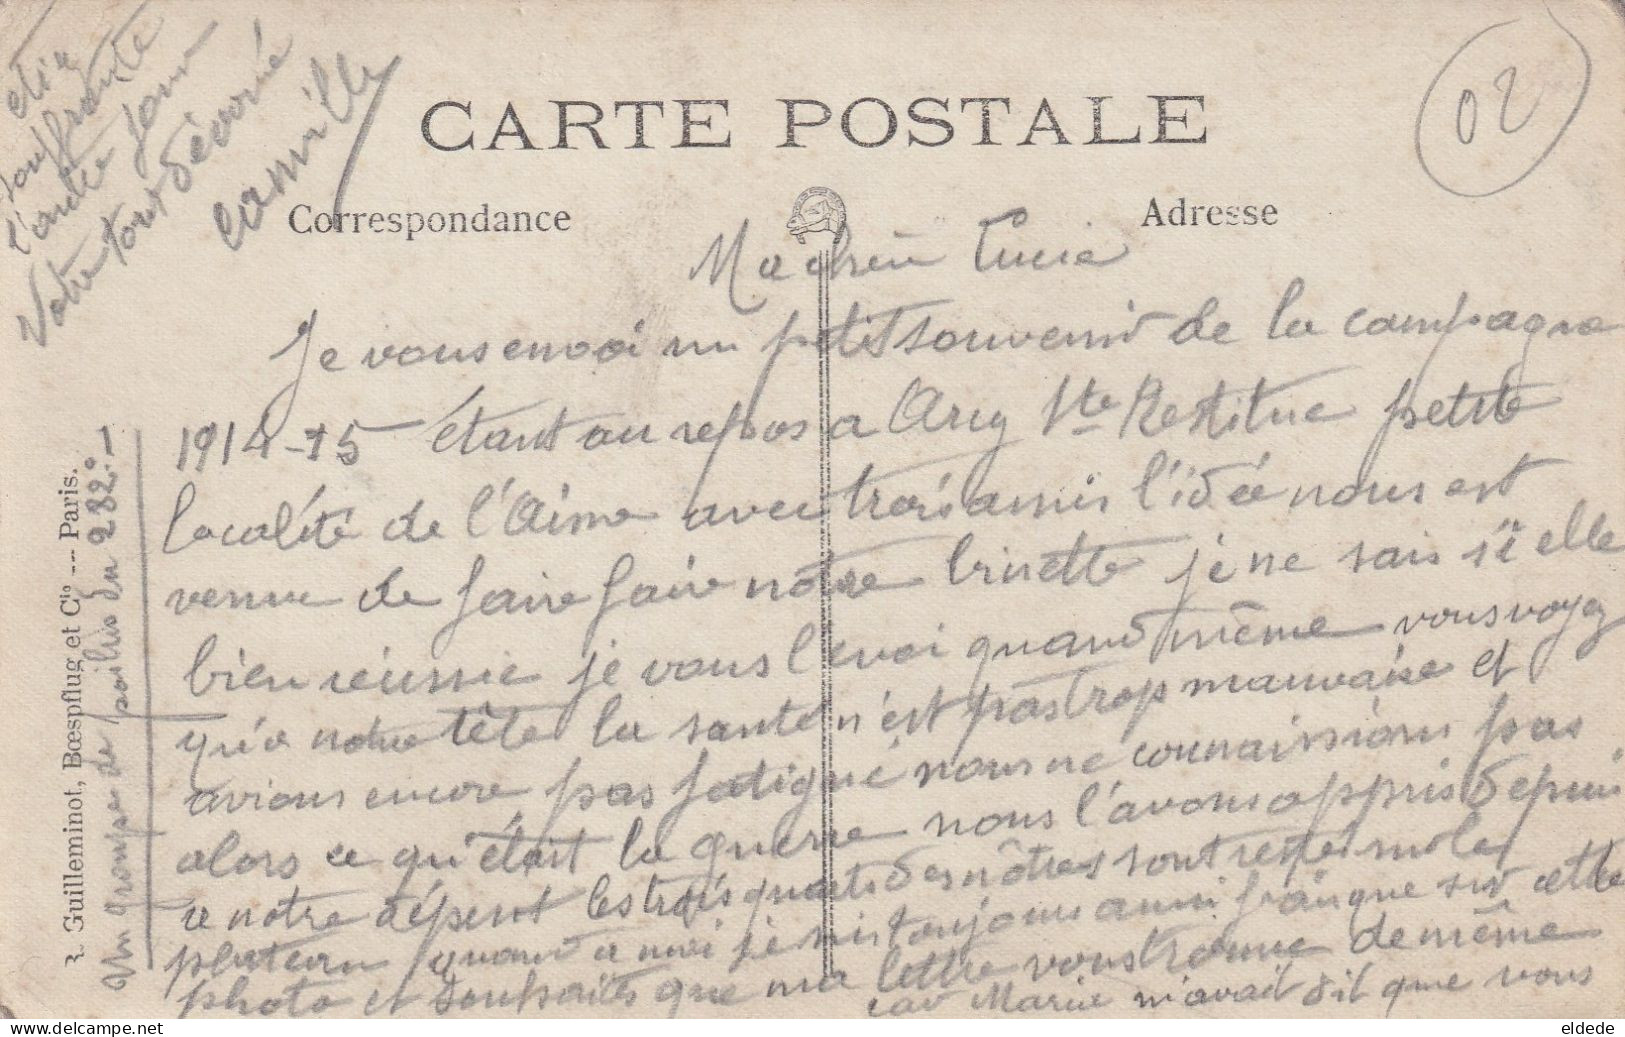 CARTE POSTALE
02
Correspondance
Adresse
Ma chère Lucie
Je vous envoi un petit souvenir de la campagne
1914-15 étant au repos a Arcy Ste Restitue petite
localité de l'Aisne avec trois amis l'idée nous est
venue de faire faire notre binette je ne sais si elle
bien réussie je vous l'envoi quand même vous voyez
qu'a notre tête la santé n'est pas trop mauvaise et
avions encore pas fatigué nous ne connaissions pas
alors ce qu'était la guerre nous l'avons appris depuis
ce notre dépent les trois quarts des nôtres sont resté sur le
plateau quand a moi je suis toujours aussi que sur cette
photo et souhaits que ma lettre vous trouve de même
car Marie m'avait dit que vous
etiez
souffrante
l'autre jour
Votre tout dévoué
Camille
R. Guilleminot, Bœspflug et Cie --- Paris.
Un groupe de poilus du 282e.-
eldede